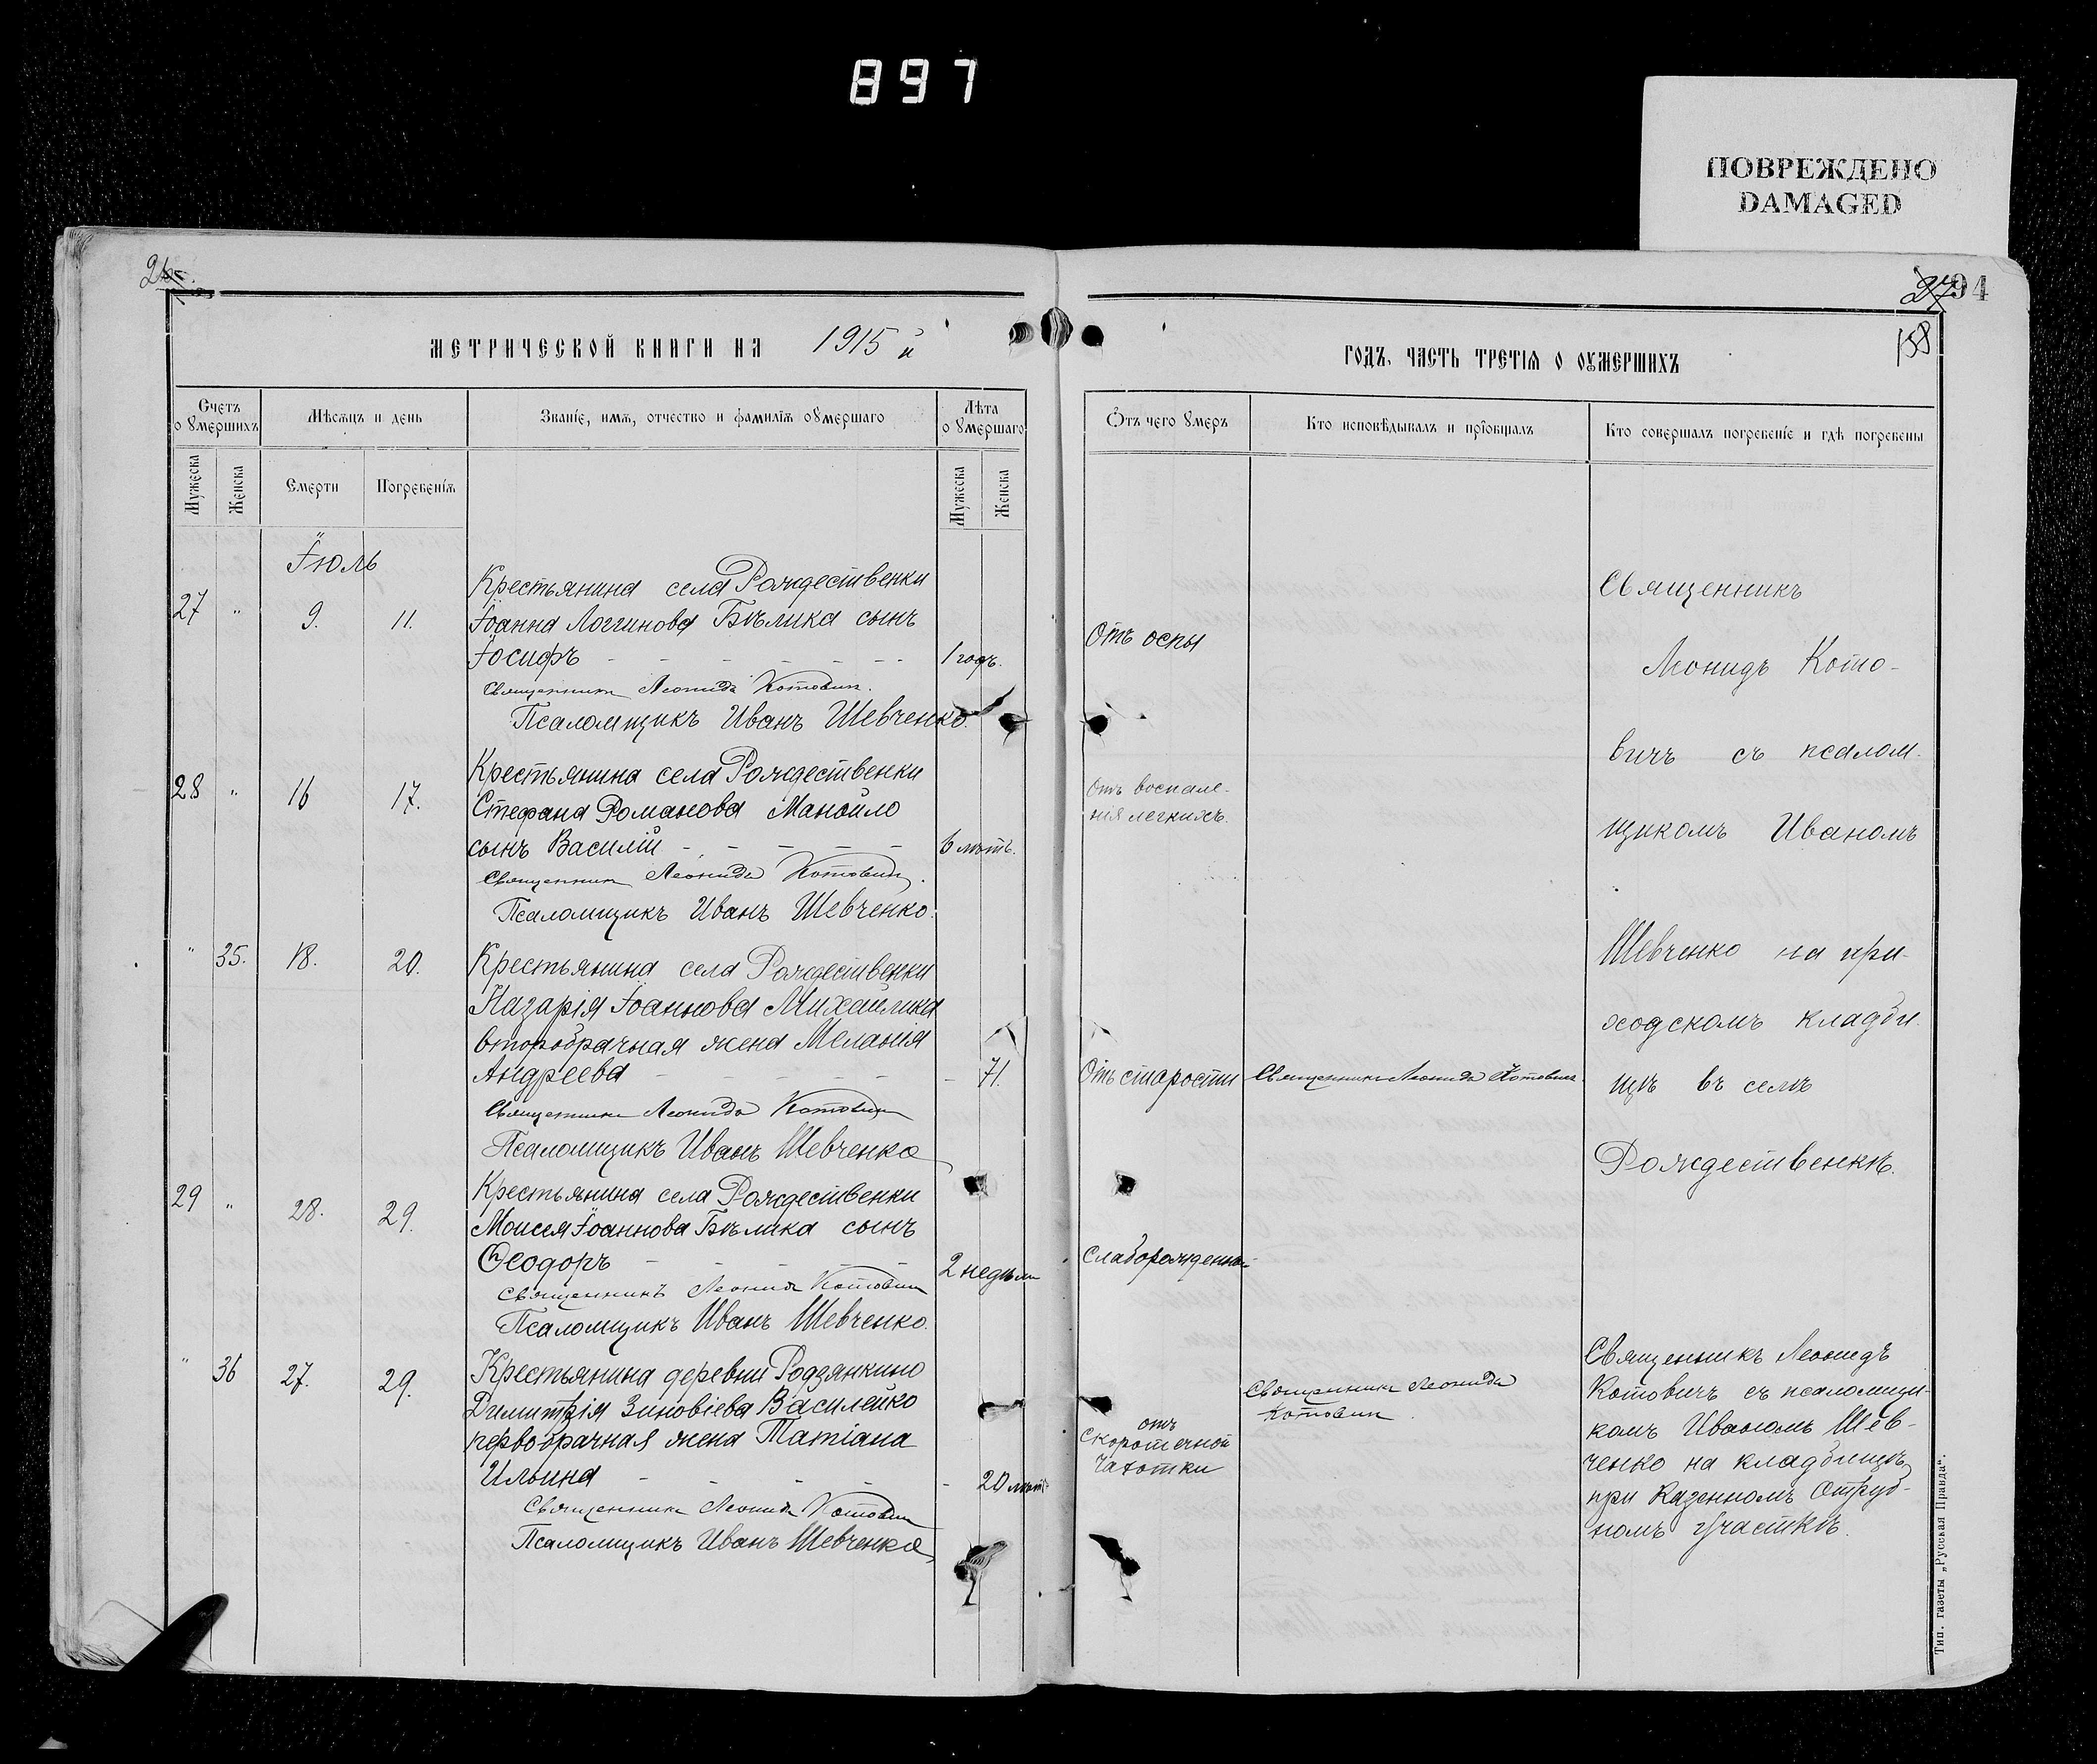 897
ПОВРЕЖДЕНО
DAMAGED
94
158
МЕТРИЧЕСКОЙ КНИГИ НА 1915 й
ГОДЪ, ЧАСТЬ ТРЕТІѦ О ОУМЕРШИХЪ
Счетъ о ꙋмершихъ
Мѣсѧцъ и день
Званіе, имѧ, отчество и фамиліѧ оумершаго
Лѣта оумершаго
Ѿтъ чего ꙋмеръ
Кто исповѣдывалъ и пріобщалъ
Кто совершалъ погребеніе и гдѣ погребены
Мужеска
Женска
Смерти
Погребеніѧ
Мужеска
Женска
Іюль
27 " 9. 11.
Крестьянина села Рождественки
Іоанна Логгинова Бѣлика сынъ
Іосифъ - - - - - - - 1 годъ.
Отъ оспы
Священникъ Леонидъ Котовичъ.
Псаломщикъ Иванъ Шевченко.
28 " 16 17.
Крестьянина села Рождественки
Стефана Романова Манойло
сынъ Василій - - - - - 6 лѣтъ.
Отъ воспале-
нія легкихъ.
Священникъ Леонидъ Котовичъ.
Псаломщикъ Иванъ Шевченко.
" 35. 18. 20.
Крестьянина села Рождественки
Назарія Іоаннова Михайлика
второбрачная жена Меланія
Андреева - - - - - - 71.
Отъ старости
Священникъ Леонидъ Котовичъ
Священникъ Леонидъ Котовичъ
Псаломщикъ Иванъ Шевченко
Священникъ
Леонидъ Кото-
вичъ съ псалом-
щикомъ Иваномъ
Шевченко на при-
ходскомъ кладби-
щѣ въ селѣ
Рождественкѣ.
29 " 28. 29.
Крестьянина села Рождественки
Моисея Іоаннова Бѣлика сынъ
Ѳеодоръ - - - - - 2 недѣли
Священникъ Леонидъ Котовичъ
Псаломщикъ Иванъ Шевченко.
" 36 27. 29.
Крестьянина деревни Родзянкино
Димитрія Зиновіева Василейко
первобрачная жена Татіана
Ильина - - - - - 20 лѣтъ
отъ
скоротечной
чахотки
Священникъ Леонидъ
Котовичъ
Священникъ Леонидъ Котовичъ
Псаломщикъ Иванъ Шевченко
Священникъ Леонидъ
Котовичъ съ псаломщи-
комъ Иваномъ Шев-
ченко на кладбищѣ
при Казенномъ Отруб-
номъ участкѣ.
Тип. газеты „Русская Правда".